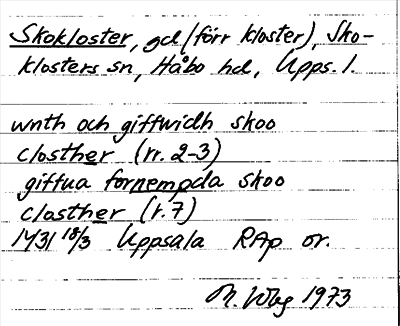 Skokloster, gd (förr kloster), Sko-
klosters sn, Håbo hd, Upps. l.
wnth och giffwidh skoo
closther (rr. 2-3)
giffua fornempda skoo
closther (r. 7)
1431 18/3 Uppsala RAp or.
1973